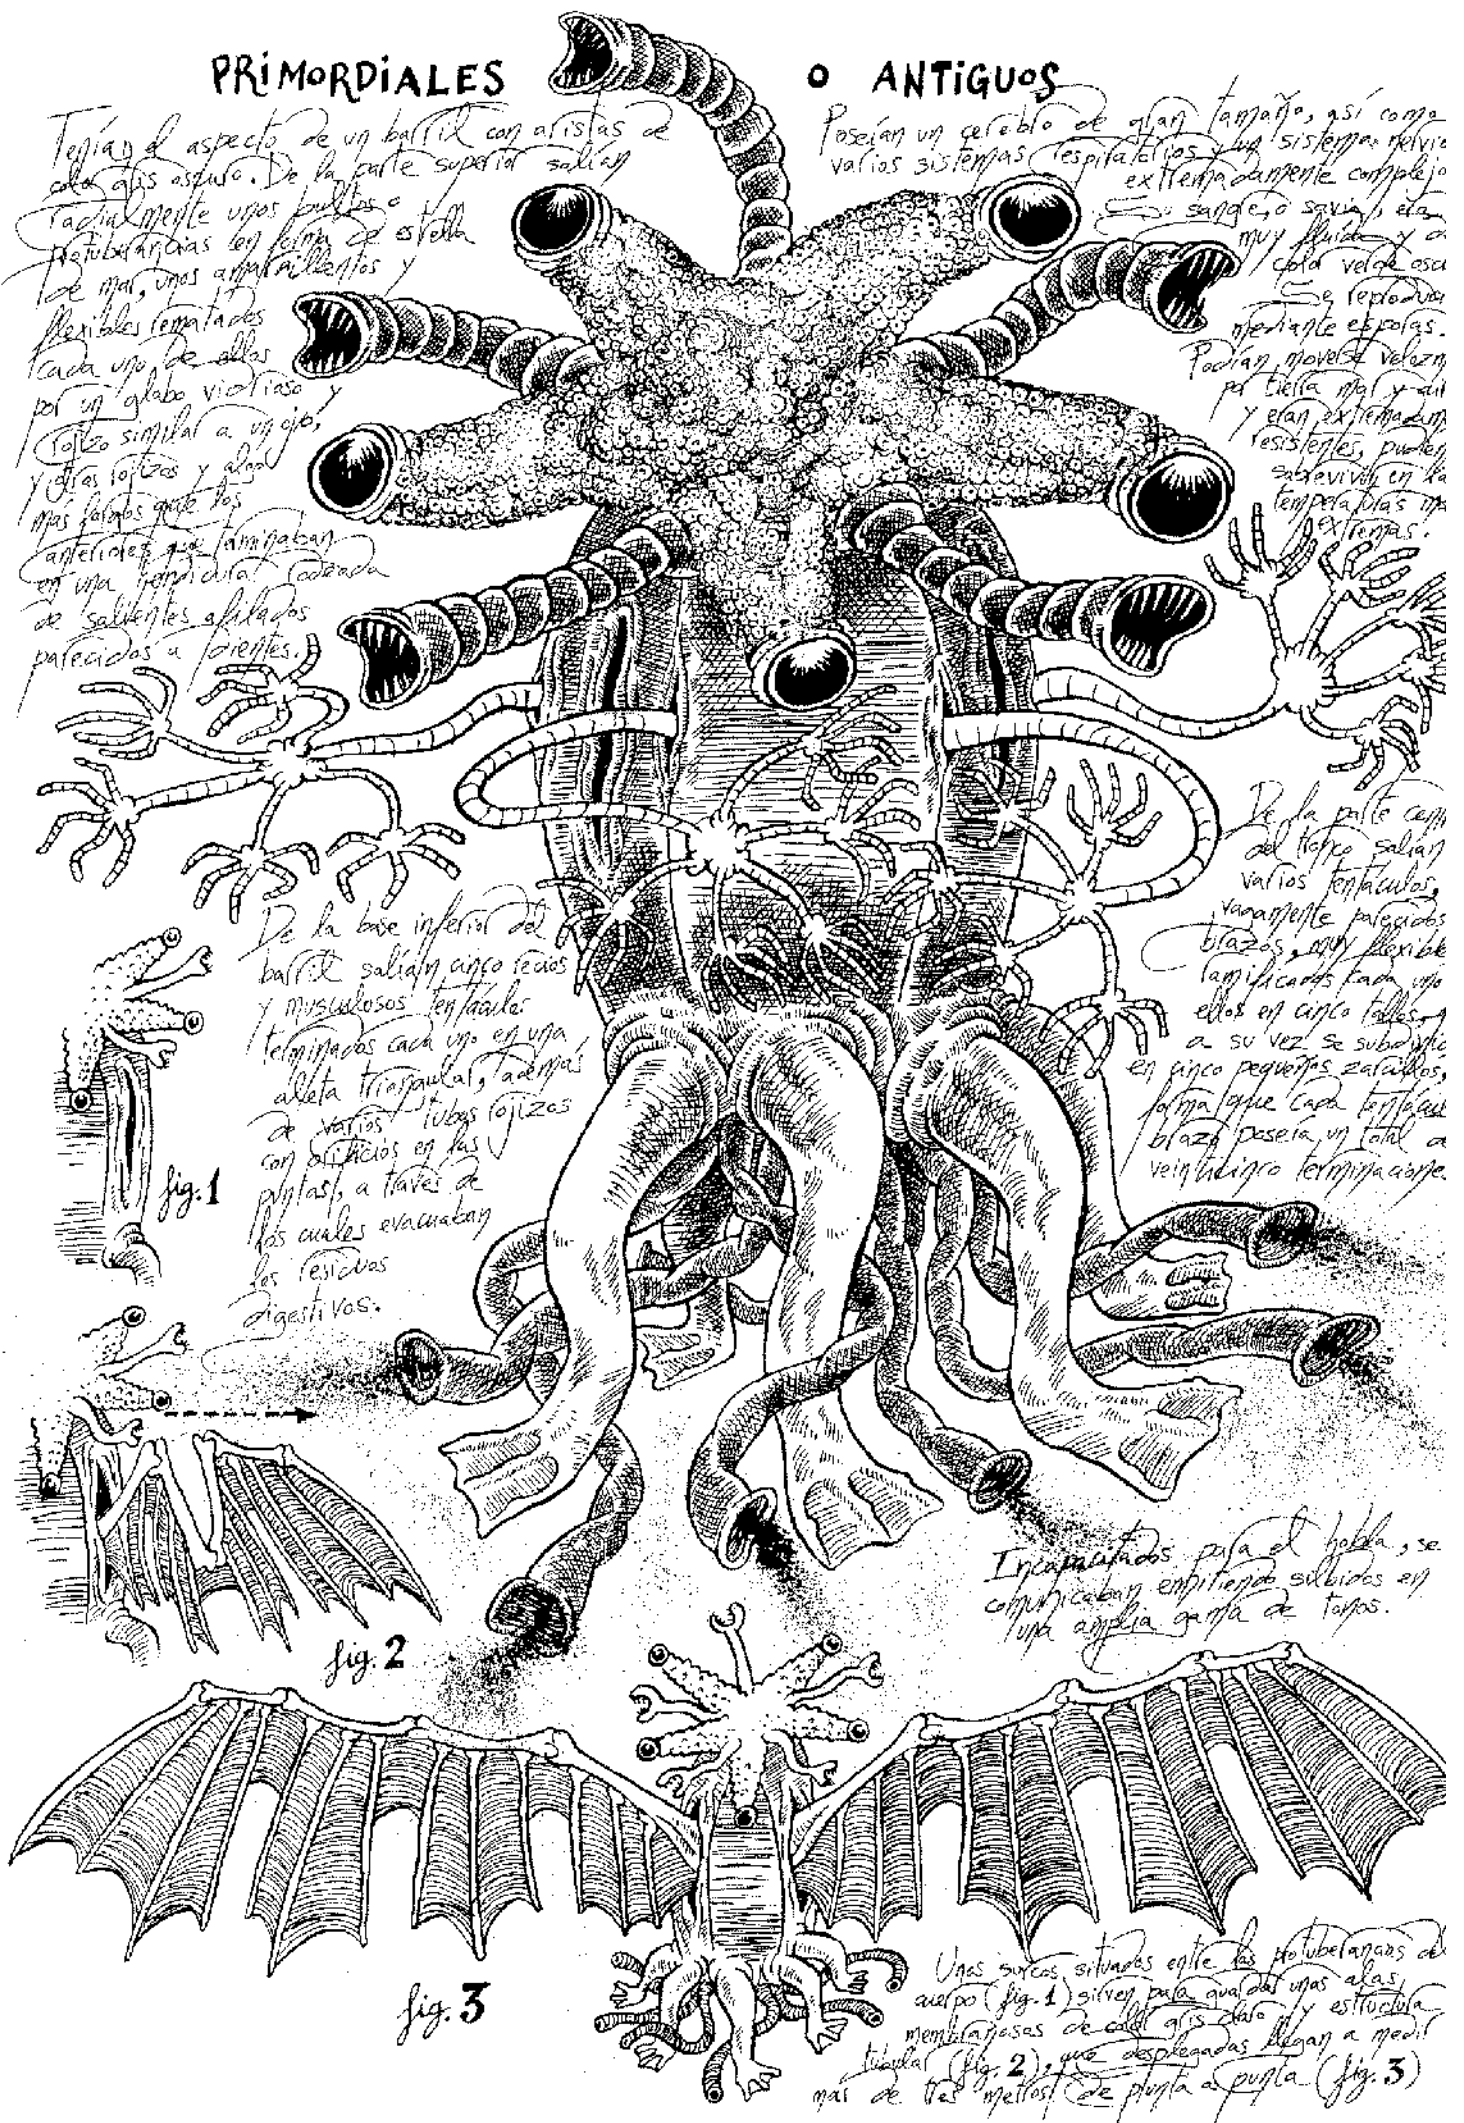 PRIMORDIALES O ANTIGUOS
Tenían el aspecto de un barril con aristas de
color gris oscuro. De la parte superior salían
radialmente unos bultos o
protuberancias en forma de estrella
de mar, unos amarillentos y
flexibles rematados
cada uno de ellos
por un globo vidrioso y
rojizo similar a un ojo,
y otros rojizos y algo
más largos que los
anteriores que terminaban
en una hendidura rodeada
de salientes afilados
parecidos a dientes.
Poseían un cerebro de gran tamaño, así como
varios sistemas respiratorios y un sistema nervio
extremadamente complejo
Su sangre, o savia, era
muy fluida y d
color verde oscu
Se reprodu
mediante esporas.
Podían moverse velozm
por tierra mar y air
y eran extremadam
resistentes, pudien
sobrevivir en la
temperaturas má
extremas.
De la parte cent
del tronco salían
varios tentáculos,
vagamente parecidos
brazos, muy flexible
ramificados cada uno
ellos en cinco tallos,
a su vez se subdivid
en cinco pequeños zarcillos,
forma que cada tentácul
brazo poseía un total d
veinticinco terminaciones
De la base inferior del
barril salían cinco recios
y musculosos tentáculos
terminados cada uno en una
aleta triangular, además
de varios tubos rojizos
con orificios en las
puntas, a través de
los cuales evacuaban
los residuos
digestivos.
fig. 1
fig. 2
Incapacitados para el habla, se
comunicaban emitiendo silbidos en
una amplia gama de tonos.
fig. 3
Unos surcos situados entre las protuberancias del
cuerpo (fig. 1) sirven para guardar unas alas
membranosas de color gris claro y estructura
tubular (fig. 2), que desplegadas llegan a medir
más de tres metros de punta a punta (fig. 3)